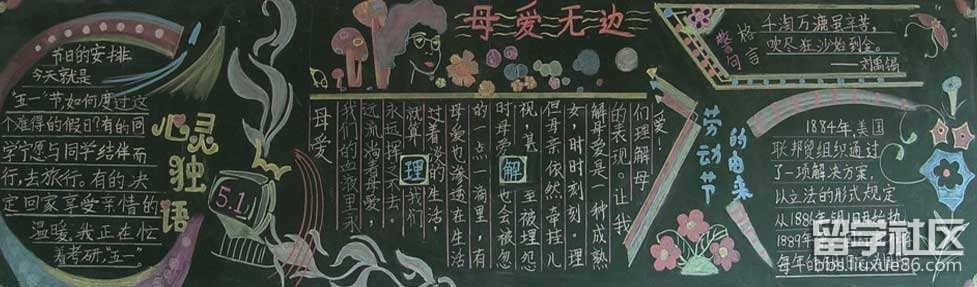 节日的安排
今天就是
"五一"节,如何度过这
个难得的假日?有的同
学宁愿与同学结伴而
行,去旅行。有的决
定回家享受亲情的
温暖,我正在忙
着考研,"五一"。
心灵独语
5.1
母爱无边
母爱
我们的血液里永
远流淌着母爱,
永远挥之不去。
就算我们
过着淡的生活,
母爱也渗透在生活
的一点一滴里,有
时母爱也会被忽
视,甚至被埋怨
但母亲依然牵挂儿
女,时时刻刻。理
解母爱是一种成熟
的表现。让我
们理解母
爱!
理
解
警句格言
千淘万漉虽辛苦,
吹尽狂沙始到金。
——刘禹锡
劳动节
的由来
1884年,美国
联邦贸组织通过
了一项解决方案,
以立法的形式规定
每年的
留学社区
bbs.liuxue86.com